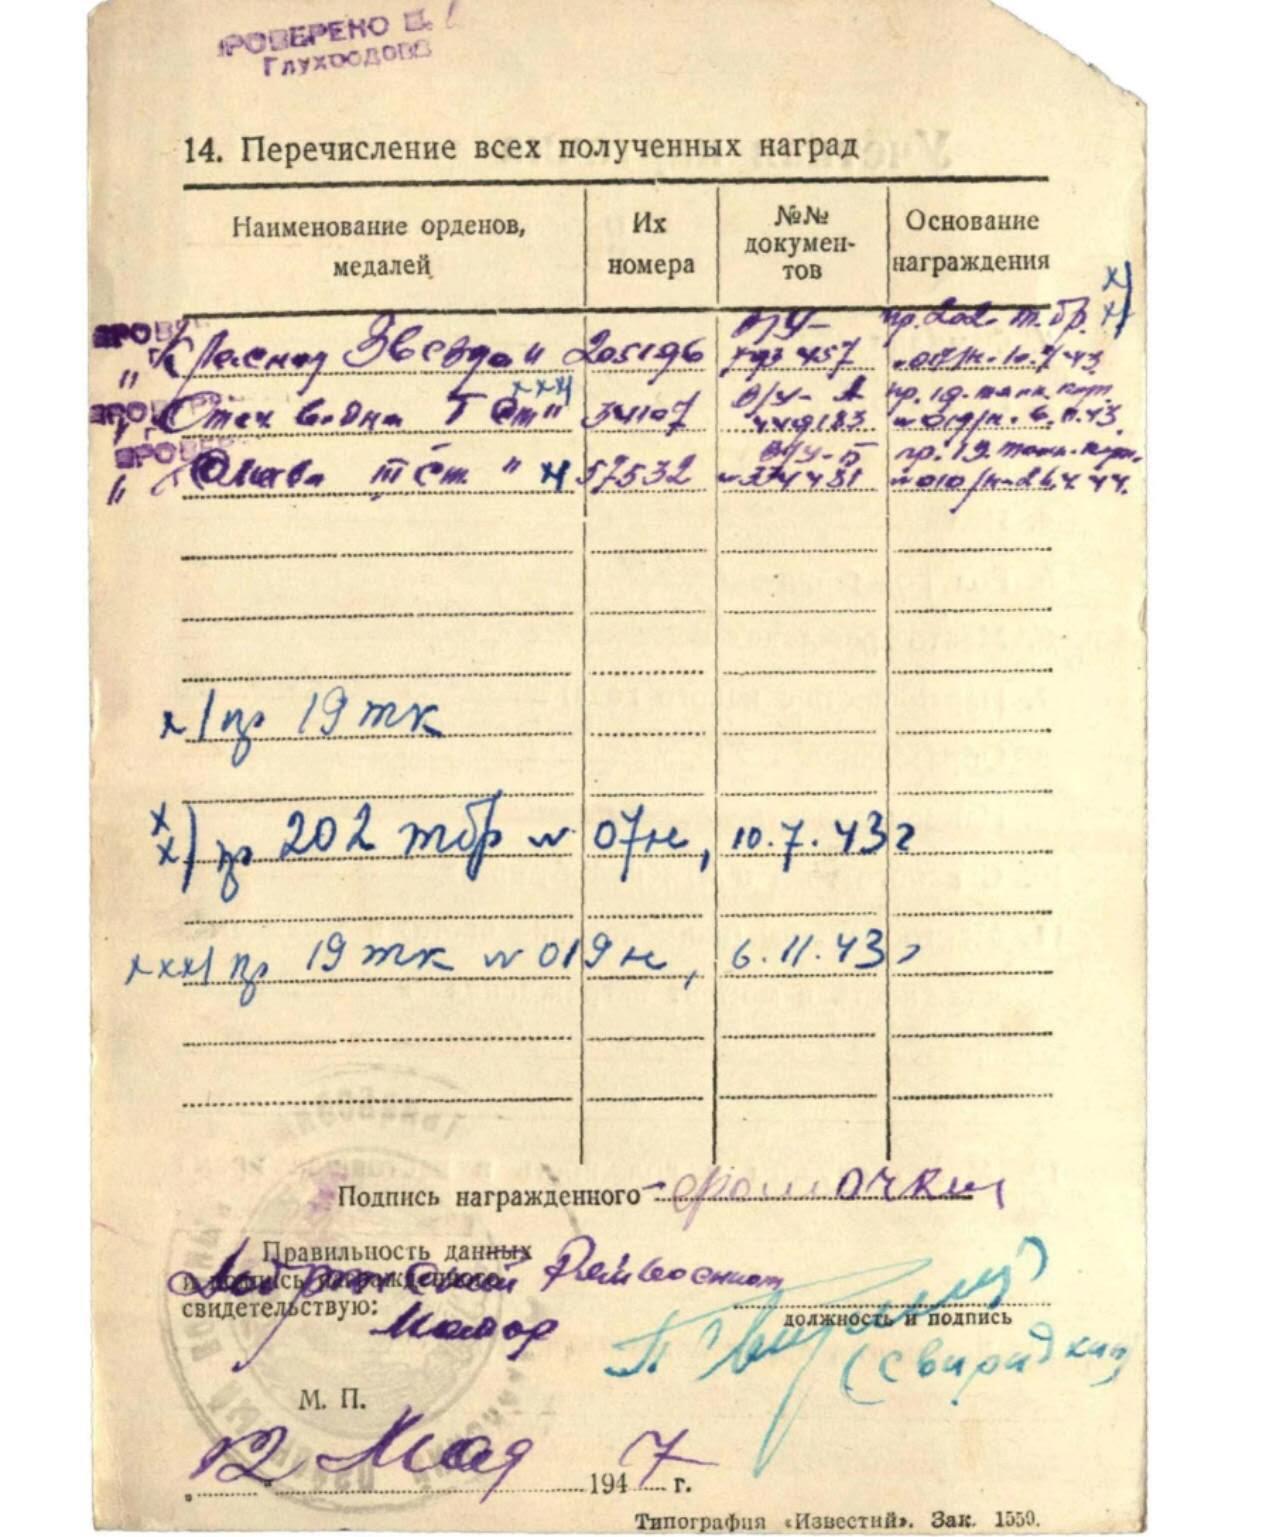 ПРОВЕРЕНО
14. Перечисление всех полученных наград
Наименование орденов, медалей
Их номера
№№ докумен-тов
Основание награждения
х)
х)
Красная Звезда 205196 457 пр. 202 т. бр. 10.7.43
ххх)
Отеч. война I ст" 34107 В/У - А 449183 пр. 19 танк. корп. № 019/н. 6.11.43
Слава III ст. " х) 57532 В/У-Б 374481 пр. 19 танк. корп. № 010/н-26.4.44.
х) пр 19 тк
х
х) пр 202 тбр № 07н, 10.7.43 г
ххх) пр 19 тк № 019н, 6.11.43 г
Подпись награжденного
Правильность данных
и подпись награжденного
свидетельствую:
Майор
должность и подпись
(Свиридкин)
М. П.
"12" Мая 1947 г.
Типография «Известий». Зак. 1559.